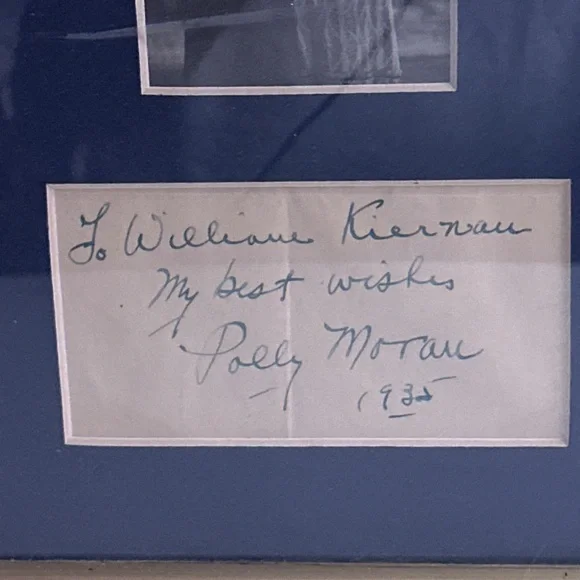 To William Kiernan
My best wishes
Polly Moran
1935